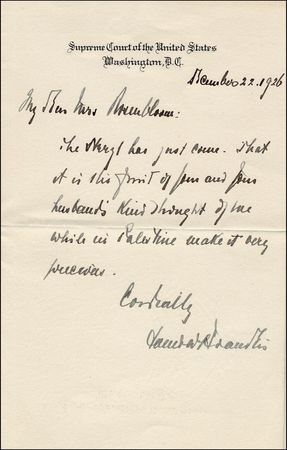 Supreme Court of the United States
Washington, D.C.
December 22. 1926
My Dear Mrs
The has just come. That
it is the fruit of your and your
husband's kind thought of me
while in Palestine make it very
precious.
Cordially
Louis D Brandeis